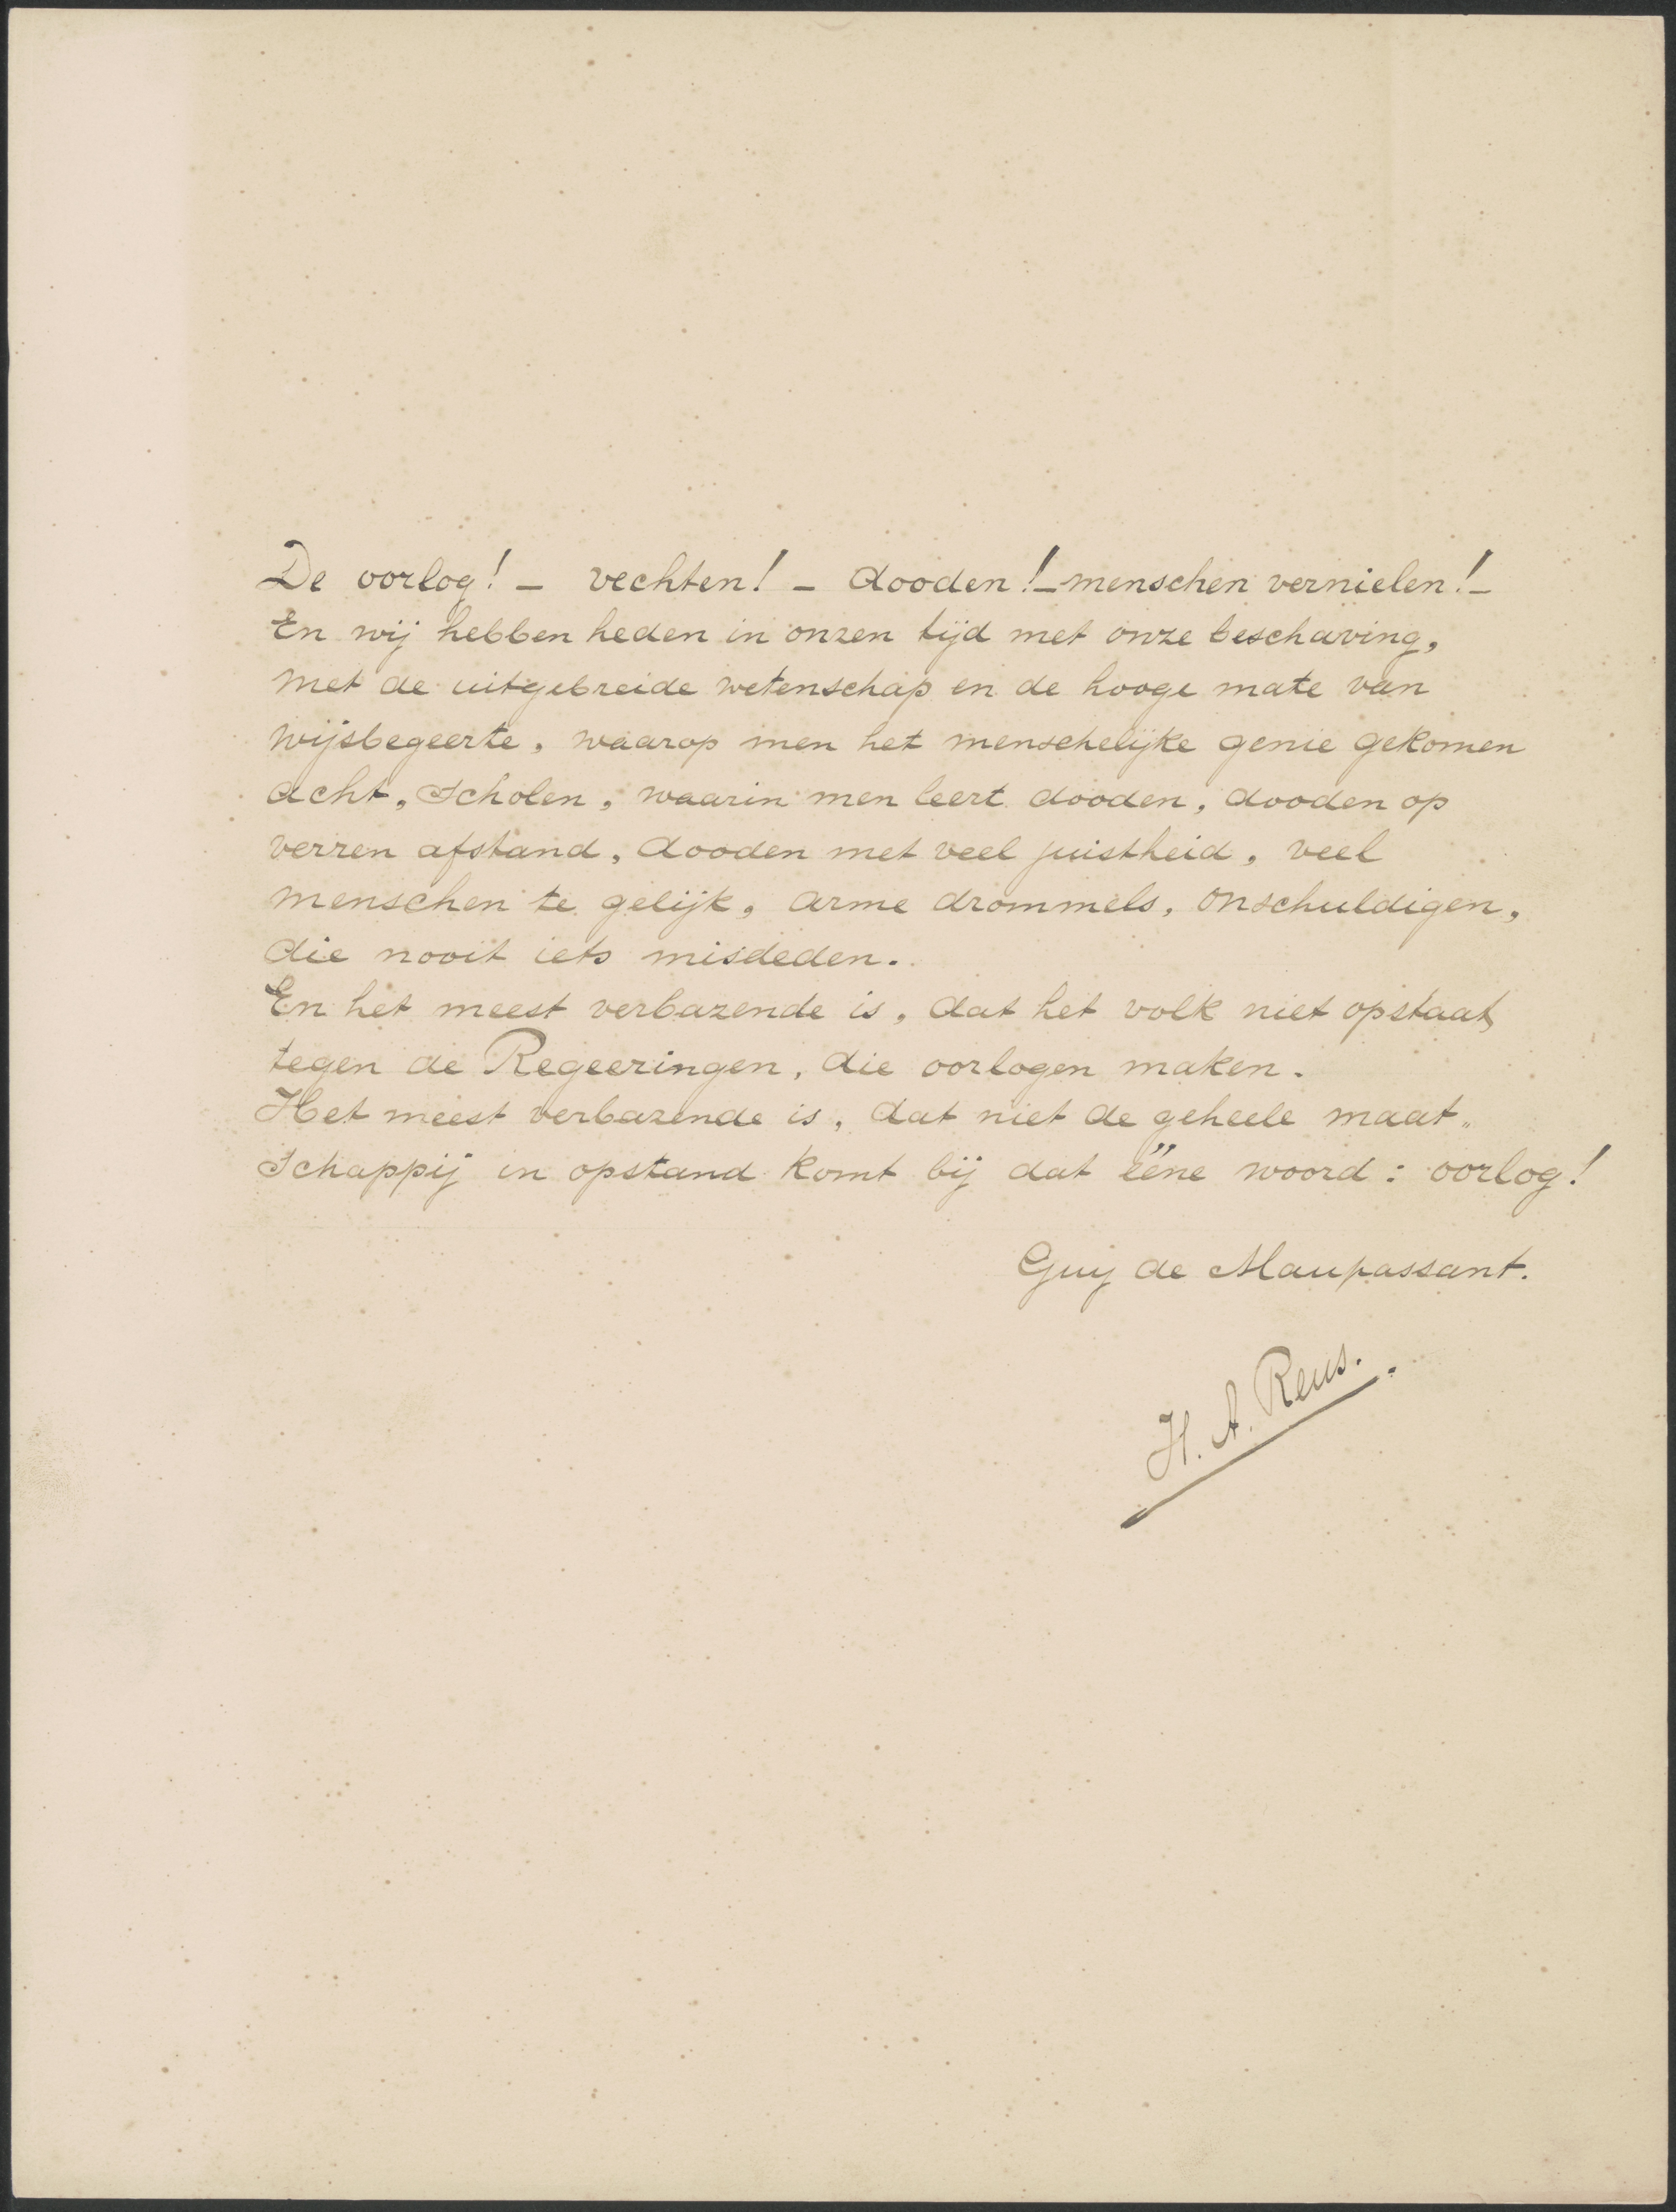 De oorlog! – vechten! – dooden! – menschen vernielen! –
En wij hebben heden in onzen tijd met onze beschaving,
met de uitgebreide wetenschap en de hooge mate van
wijsbegeerte, waarop men het menschelijke genie gekomen
acht, scholen, waarin men leert dooden, dooden op
verren afstand, dooden met veel juistheid, veel
menschen te gelijk, arme drommels, onschuldigen,
die nooit iets misdeden.
En het meest verbazende is, dat het volk niet opstaat
tegen de Regeeringen, die oorlogen maken.
Het meest verbazende is, dat niet de geheele maat„
schappij in opstand komt bij dat ééne woord: oorlog!
Guy de Maupassant.
H. A. Reus.